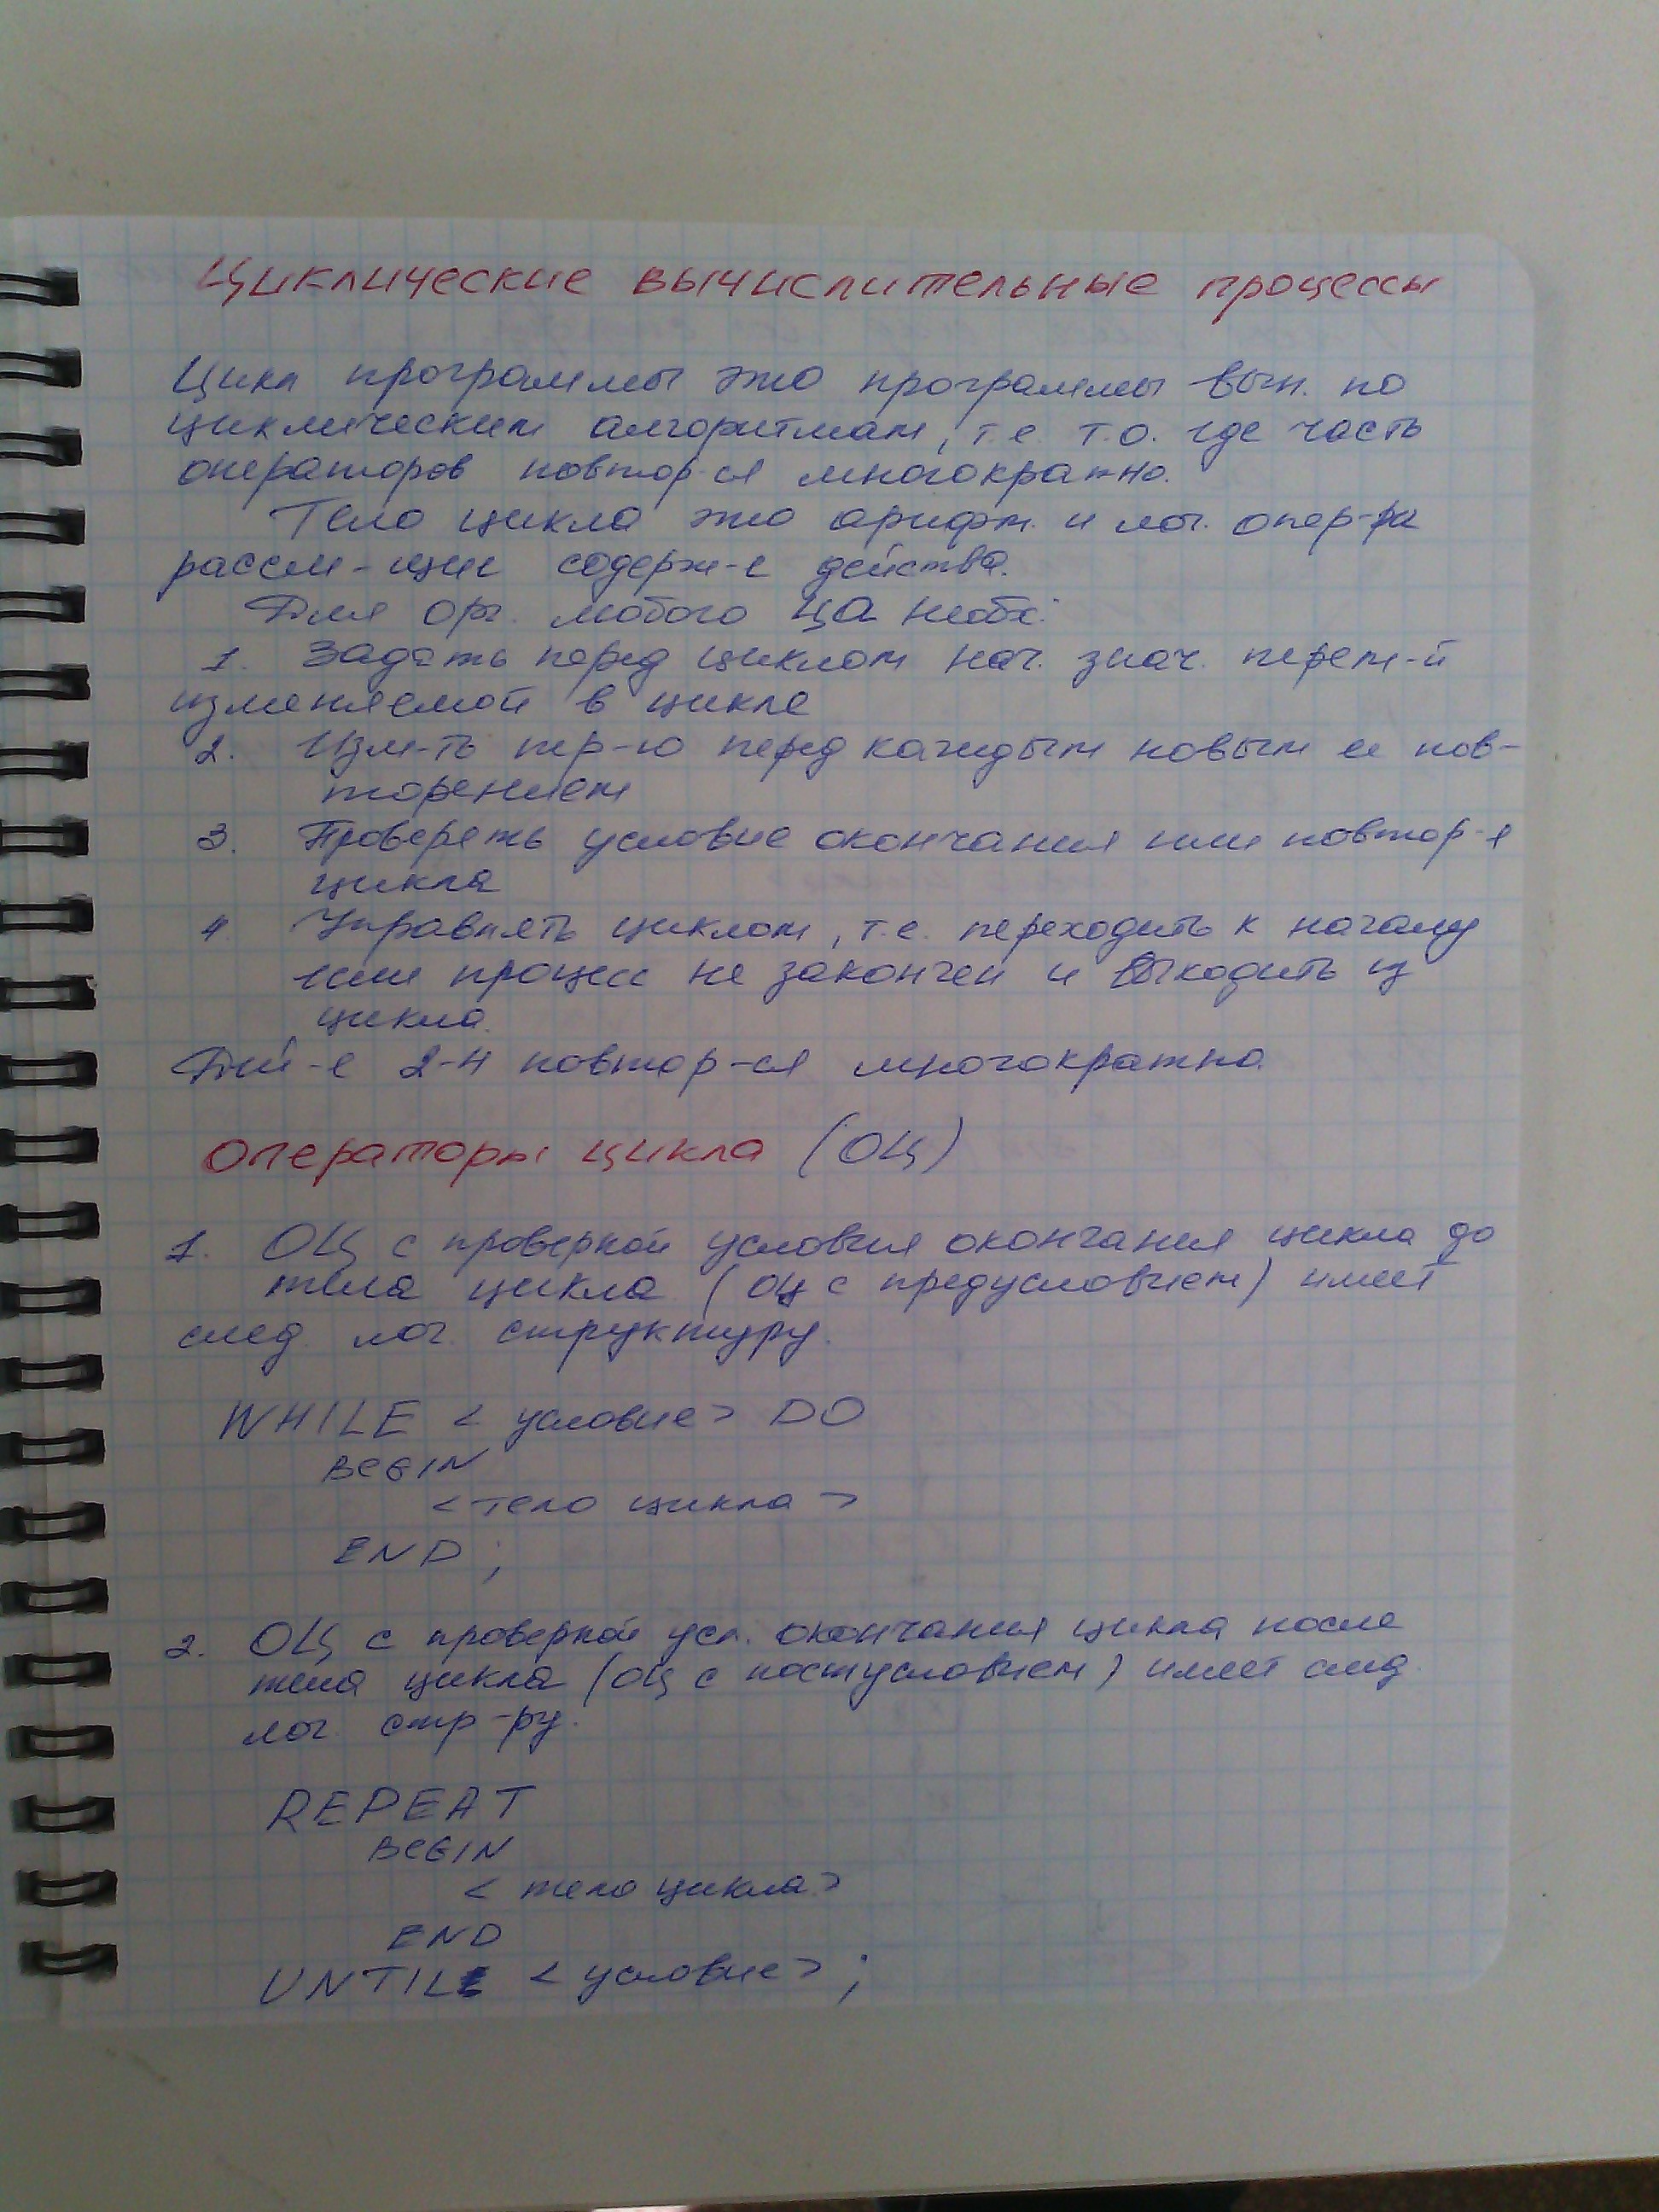 Циклические вычислительные процессы
Цикл программы это программы вып. по
циклическим алгоритмам, т.е. т.о. где часть
операторов повтор-ся многократно.
Тело цикла это арифм. и лог. опер-ра
рассм-щие содерж-е действа.
Для орг. любого ЦА необх:
1. Задать перед циклом нач. знач. перем-й
изменяемой в цикле
2. Изм-ть пер-ю перед каждым новым ее пов-
торением
3. Проверять условие окончания или повтор-я
цикла
4. Управлять циклом, т.е. переходить к началу
если процесс не закончен и выходить из
цикла.
Дей-е 2-4 повтор-ся многократно.
Операторы цикла (ОЦ)
1. ОЦ с проверкой условия окончания цикла до
тела цикла (ОЦ с предусловием) имеет
след. лог. структуру.
WHILE < условие > DO
BEGIN
< тело цикла >
END ;
2. ОЦ с проверкой усл. окончания цикла после
тела цикла (ОЦ с постусловием) имеет след.
лог. стр-ру.
REPEAT
BEGIN
< тело цикла >
END
UNTIL < условие > ;